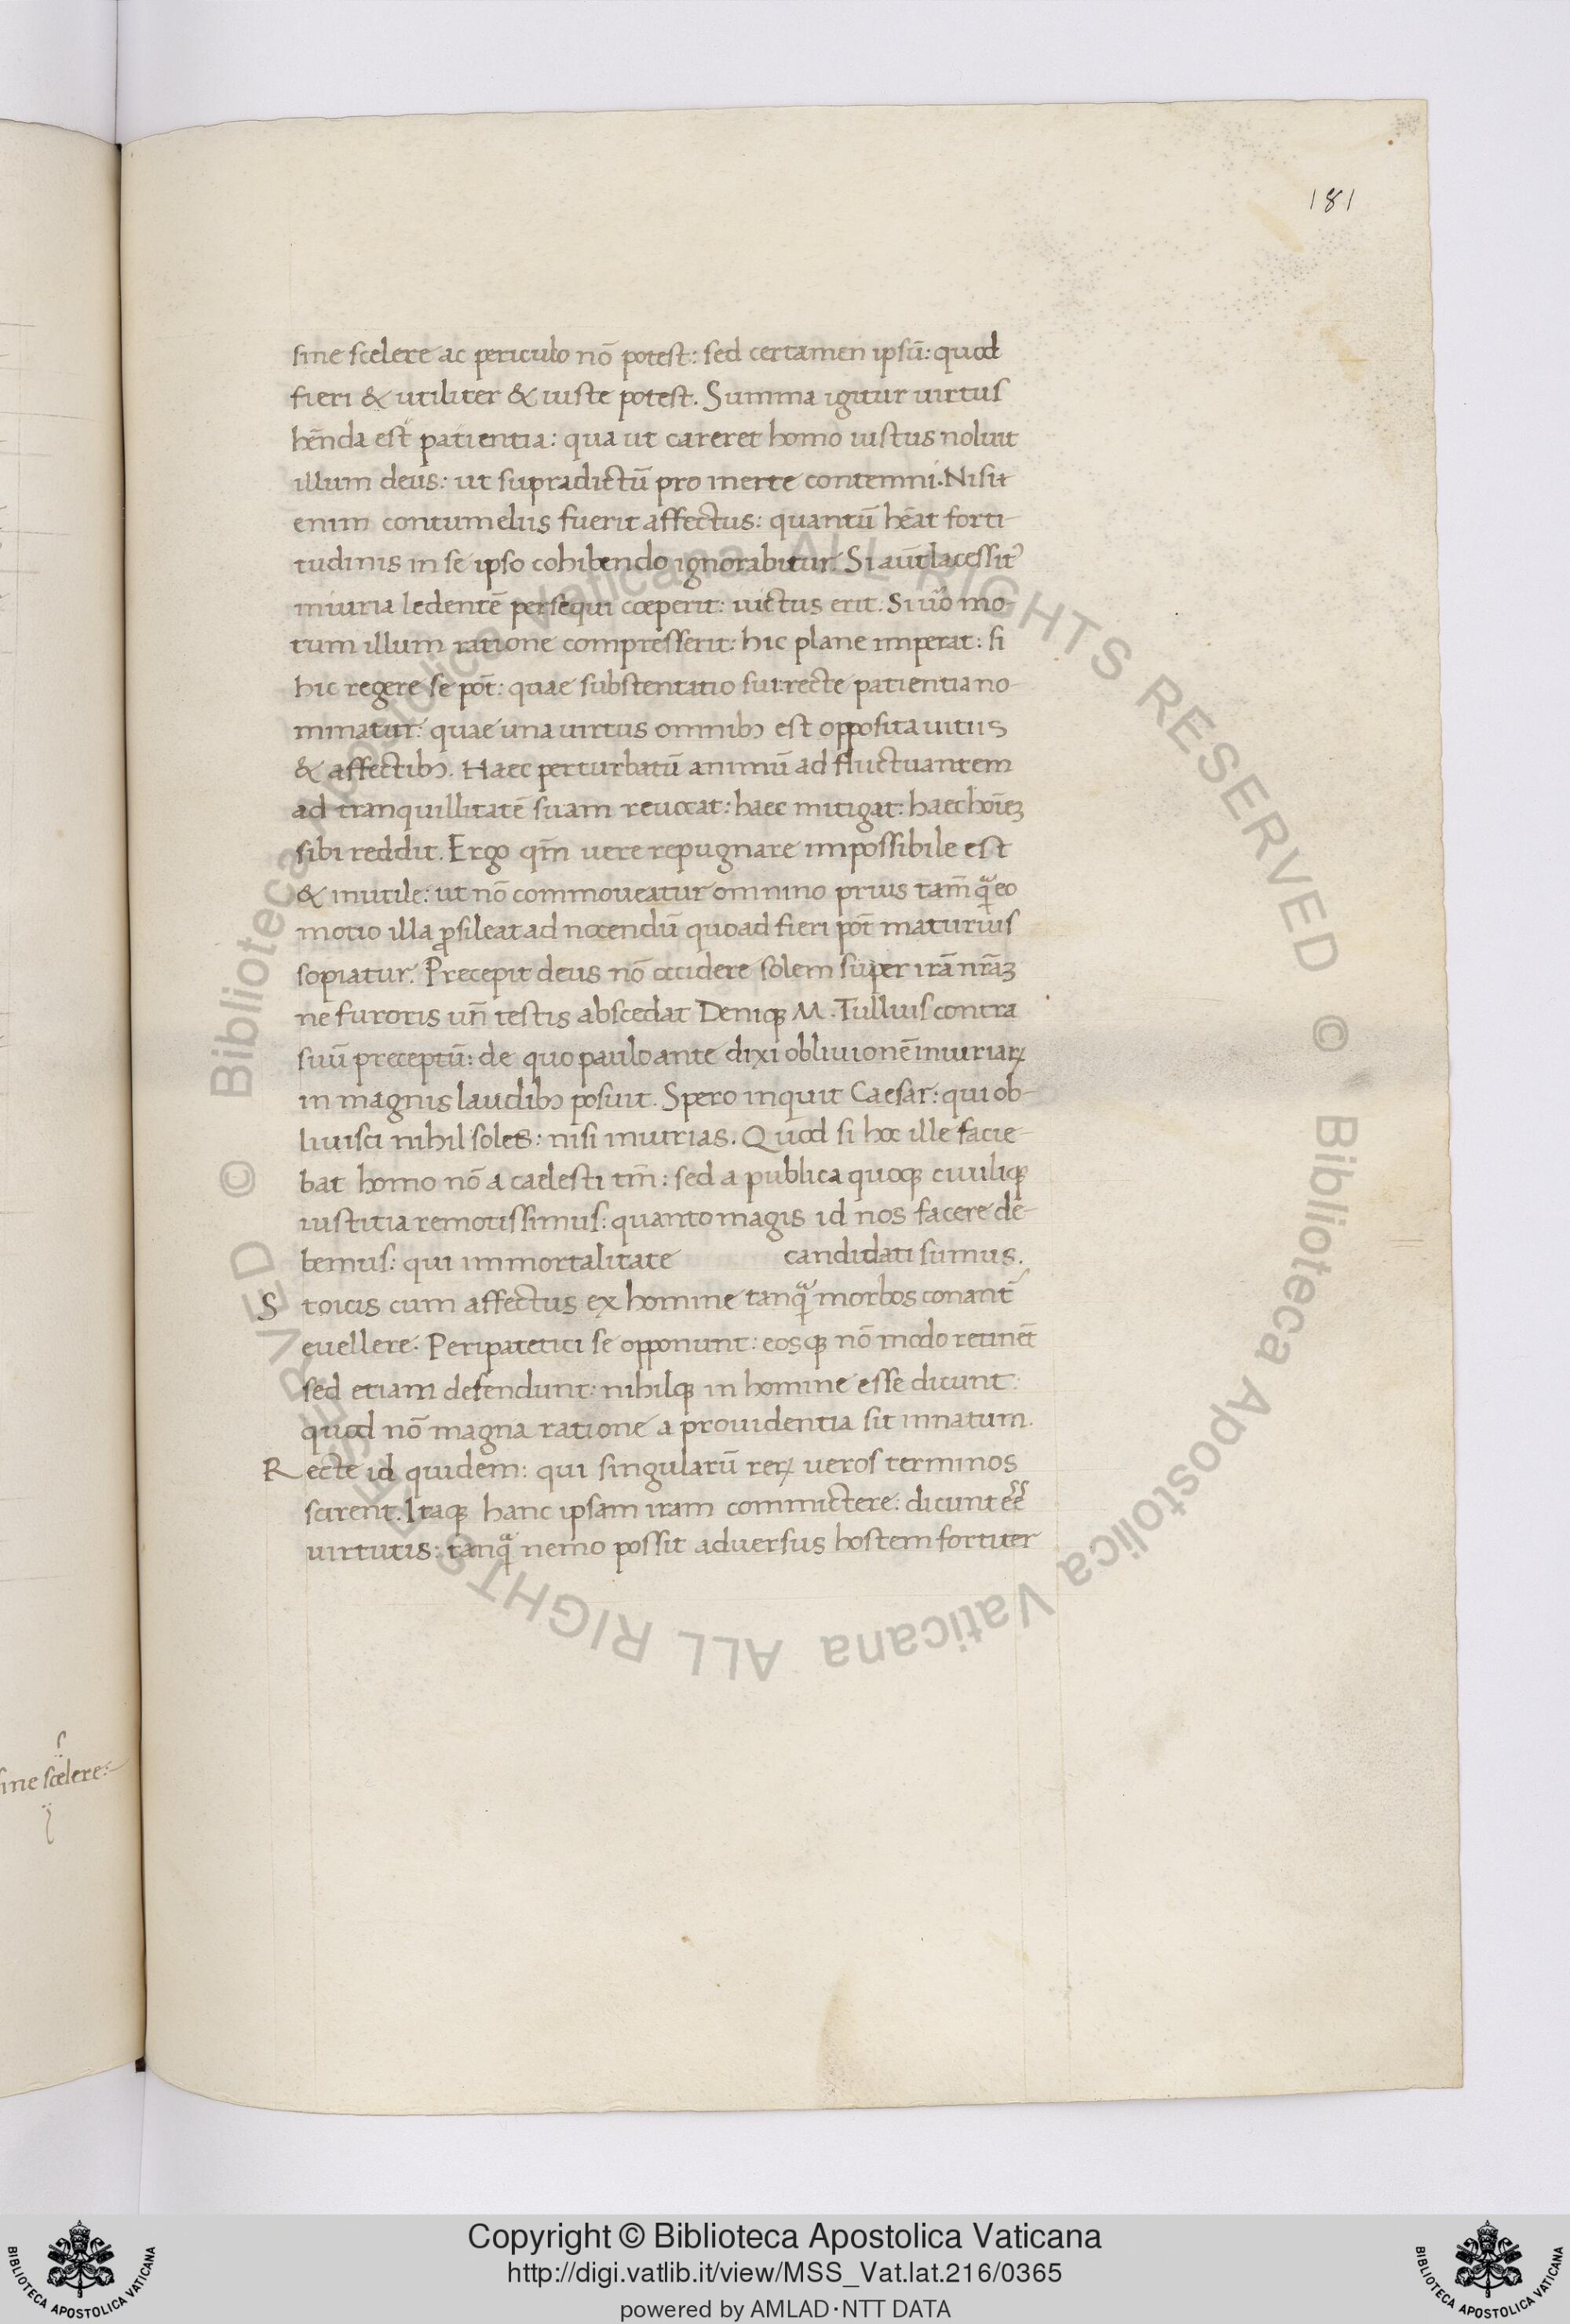 181
sine scelere ac periculo nō potest: sed certamen ipsū: quod
fieri & utiliter & iuste potest. Summa igitur uirtus
hēnda est patientia: qua ut careret homo iustus noluit
illum deus: ut supradictū pro inerte contemni. Nisit
enim contumeliis fuerit affectus: quantū hēat forti
tudinis in se ipso cohibendo ignorabitur. Si aūt lacessit᾽
iniuria ledentē persequi coeperit: uictus erit. Si uo͂ mo-
tum illum ratione compresserit: hic plane imperat: si
hic regere se pōt: quae substentatio sui: recte patientia no
minatur: quae una uirtus omnibꝫ est opposita uitiis
& affectibꝫ. Haec perturbatū animū ad fluctuantem
ad tranquillitatē suam reuocat: haec mitigat: haec hoīeꝫ
sibi reddit. Ergo qm̄ uere repugnare impossibile est
& inutile: ut nō commoueatur omnino prius tam̄ qᷓ eo
motio illa ꝓsileat ad nocendū quoad fieri pōt maturius
sopiatur. Precepit deus nō occidere solem super irā nr̄aꝫ
ne furoris un̄ testis abscedat Deniqꝫ M. Tullius contra
suū preceptū: de quo paulo ante dixi obliuionē iniuriaꝝ
in magnis laudibꝫ posuit. Spero inquit Caesar: qui ob-
liuisci nihil soles: nisi iniurias. Quod si hoc ille facie
bat homo nō a caelesti tm̄: sed a publica quoqꝫ ciuiliqꝫ
iustitia remotissimus: quanto magis id nos facere de-
bemus: qui immortalitate candidati sumus.
Stoicis cum affectus ex homine tanqᷓ morbos conant̄
euellere. Peripatetici se opponunt: eosqꝫ nō modo retinēt
sed etiam defendunt: nihilqꝫ in homine esse dicunt:
quod nō magna ratione a prouidentia sit innatum.
Recte id quidem: qui singularū reꝝ ueros terminos
scirent. Itaqꝫ hanc ipsam iram commictere: dicunt ēē
uirtutis: tanqᷓ nemo possit aduersus hostem fortiter
sine scelere:
© Biblioteca Apostolica Vaticana ALL RIGHTS RESERVED © Biblioteca Apostolica Vaticana ALL RIGHTS RESERVED
Copyright © Biblioteca Apostolica Vaticana
http://digi.vatlib.it/view/MSS_Vat.lat.216/0365
powered by AMLAD·NTT DATA
BIBLIOTECA APOSTOLICA VATICANA
BIBLIOTECA APOSTOLICA VATICANA